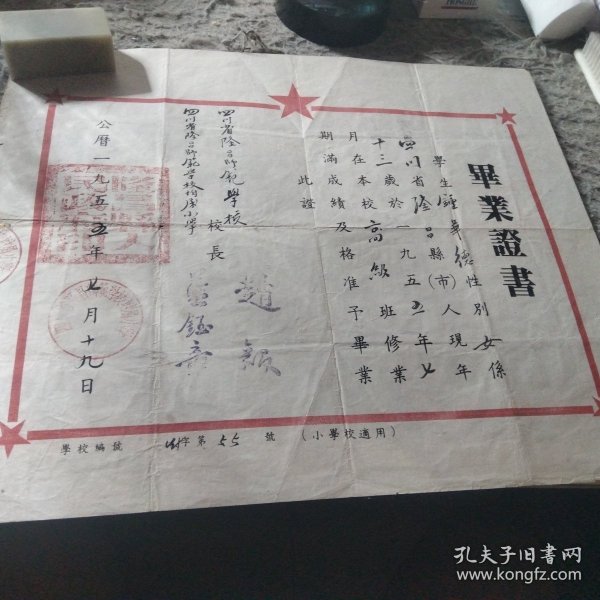 畢業證書
學生鍾華德性別女係
四川省隆昌縣(市)人現年
十三歲於一九五五年七
月在本校高級班修業
期滿成績及格准予畢業
此證
四川省隆昌師範學校
四川省隆昌師範學校附屬小學
校長
公曆一九五五年七月十九日
學校編號 字第55號 (小學校適用)
孔夫子旧书网
www.kongfz.com